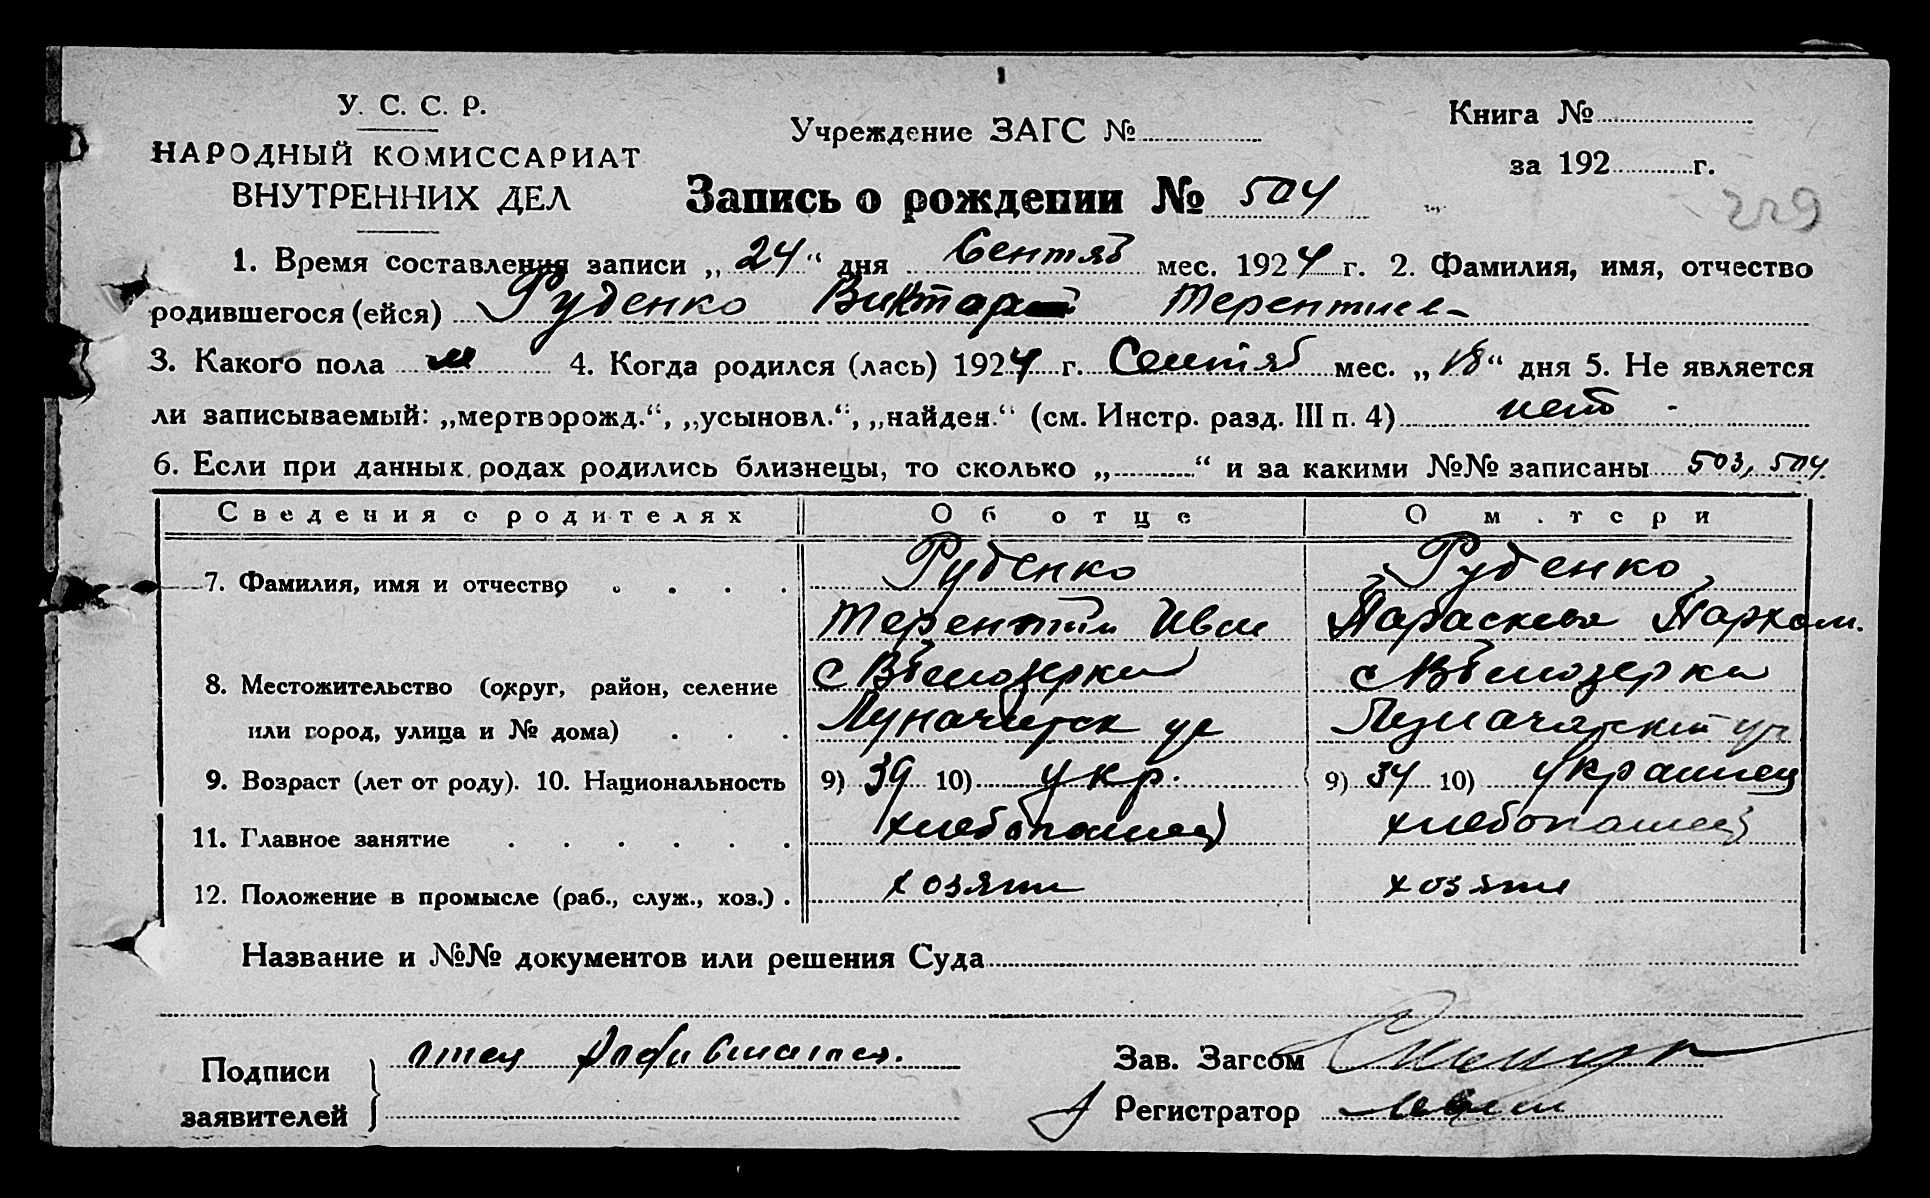 У. С. С. Р.
НАРОДНЫЙ КОМИССАРИАТ
ВНУТРЕННИХ ДЕЛ
Учреждение ЗАГС №
Книга №
за 192 г.
Запись о рождении № 504
229
1. Время составления записи „24“ дня Сентяб мес. 1924 г. 2. Фамилия, имя, отчество
родившегося (ейся) Руденко Виктор Терентиев
3. Какого пола м 4. Когда родился (лась) 1924 г. Сентяб мес. „18“ дня 5. Не является
ли записываемый: „мертворожд.“, „усыновл.“, „найден.“ (см. Инстр. разд. III п. 4) нет
6. Если при данных родах родились близнецы, то сколько „ “ и за какими №№ записаны 503, 504.
Сведения о родителях Об отце О м.тери
7. Фамилия, имя и отчество Руденко Руденко
Терентий Иван Параскева Пархом.
8. Местожительство (округ, район, селение с Вбелозерки с Вбелозерки
или город, улица и № дома) Луначарск ул Луначарский ул
9. Возраст (лет от роду). 10. Национальность 9) 39 10) укр. 9) 34 10) украинец
11. Главное занятие хлебопашец хлебопашец
12. Положение в промысле (раб., служ., хоз.) хозяин хозяин
Название и №№ документов или решения Суда
Подписи заявителей отец
Зав. Загсом
Регистратор